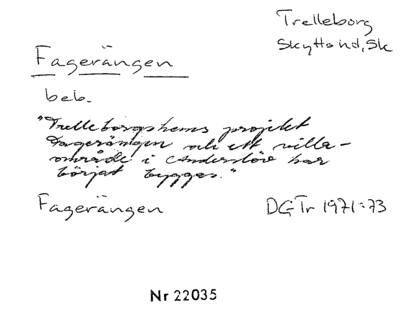 Trelleborg
Skytts hd, Sk
Fagerängen
beb.
"Trelleborgshems projekt
Fagerängen och ett villa-
område i Anderslöv har
börjat byggas."
Fagerängen
DGTr 1971:73
Nr 22035